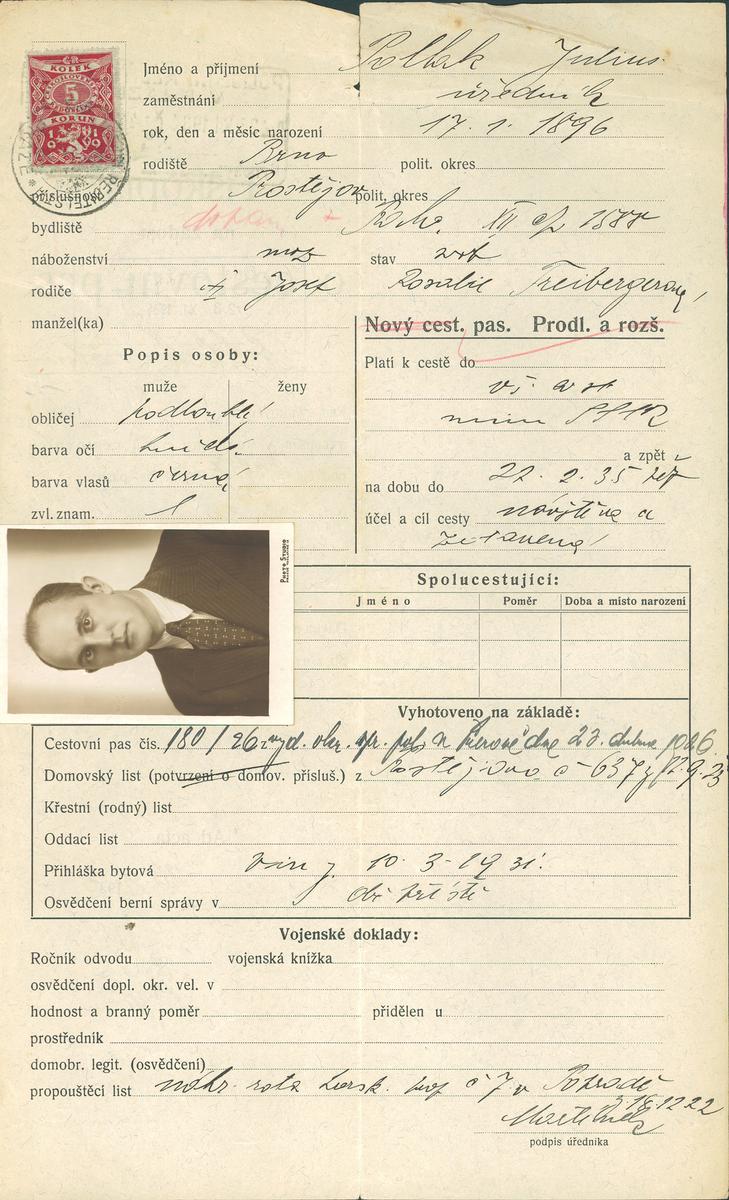 ČR
KOLEK
5
KORUN
1919
Jméno a příjmení Pollak Julius
zaměstnání úředník
rok, den a měsíc narození 17. 1. 1896
rodiště Brno polit. okres
příslušnost Prostějov polit. okres
bydliště XII čp 1588
náboženství moz stav
rodiče Josef Rosalie Freibergerová
manžel(ka)
Nový cest. pas. Prodl. a rozš.
Popis osoby:
muže ženy
obličej podlouhlý
barva očí hnědá
barva vlasů černá
zvl. znam.
Platí k cestě do
mimo SSSR
a zpět
na dobu do 22. 2. 35
účel a cíl cesty návštěva a
PHOTO STUDIO
Spolucestující:
Jméno Poměr Doba a místo narození
Vyhotoveno na základě:
Cestovní pas čís. 180/26 vyd. pol. v dne 23. dubna 1926
Domovský list (potvrzení o domov. přísluš.) z Prostějova č 637 12.9.25
Křestní (rodný) list
Oddací list
Přihláška bytová 10. 3. 1931.
Osvědčení berní správy v
Vojenské doklady:
Ročník odvodu vojenská knížka
osvědčení dopl. okr. vel. v
hodnost a branný poměr přidělen u
prostředník
domobr. legit. (osvědčení)
propouštěcí list náhr. rota č 7 v Popradě
18.12.22
podpis úředníka